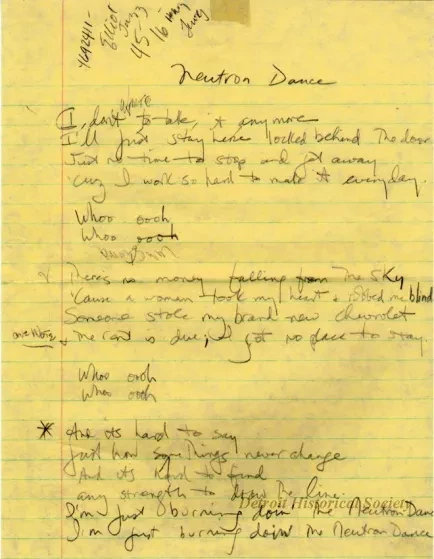 45
16
Neutron Dance
I don't to take it anymore
I'll just stay here locked behind the door
Just no time to stop and get away
'cuz I work so hard to make it everyday.
Whoo oooh
Whoo oooh
There's no money falling from the Sky
'Cause a woman took my heart & robbed me blind
Someone stole my brand new chevrolet
& the rent is due, I got no place to stay.
Whoo oooh
Whoo oooh
* And its hard to say
Just how some things never change
And its hard to find
any strength to draw the line.
Detroit Historical Society
I'm just burning doin the Neutron Dance
I'm just burning doin' the Neutron Dance